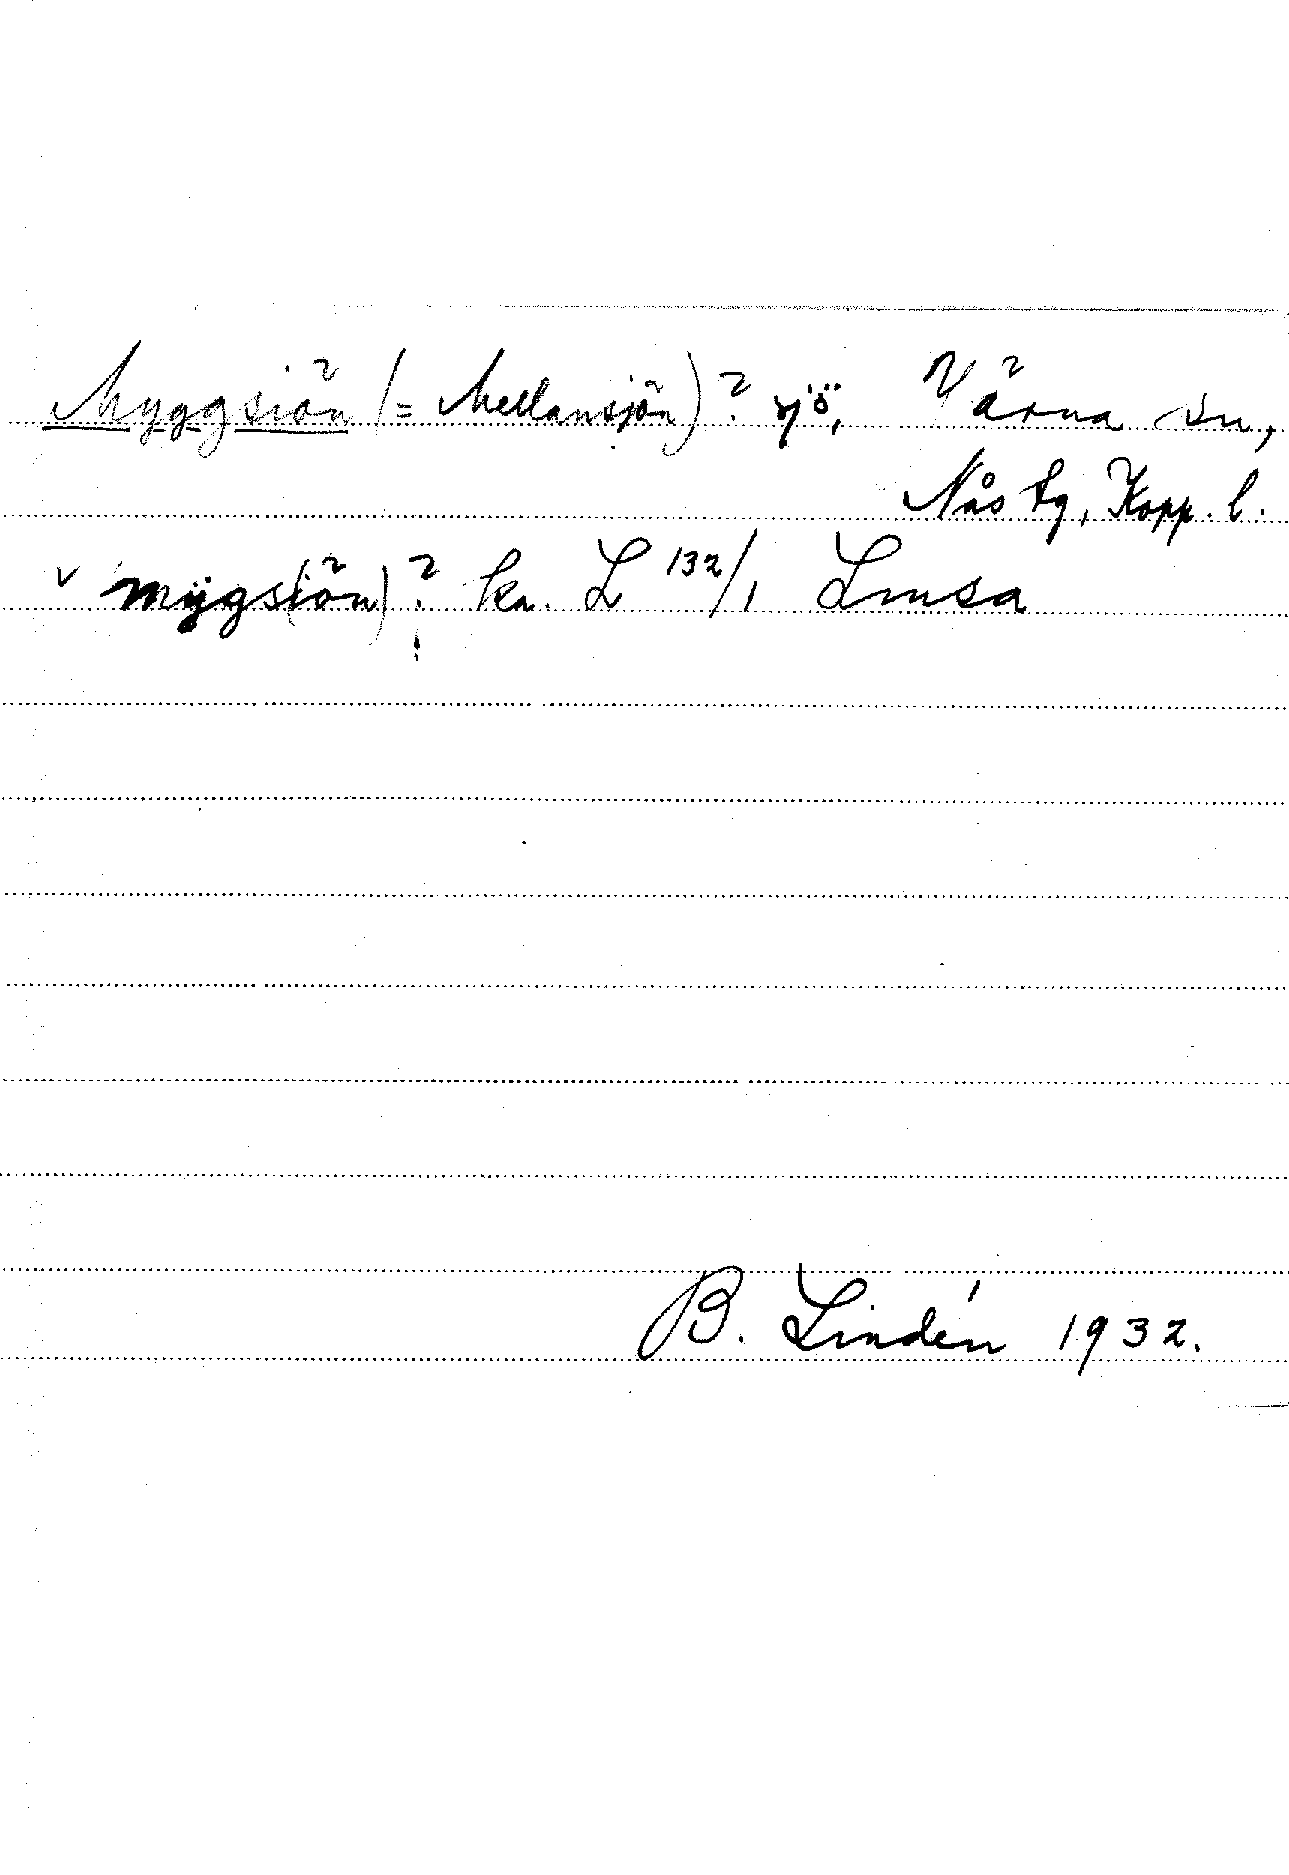 Myggsiön (= Mellansjön)? sjö, Värna sn,
Nås tg, Kopp. l.
v mÿgs(iön)? kn. L 132/1 Limsa
B. Lindén 1932.